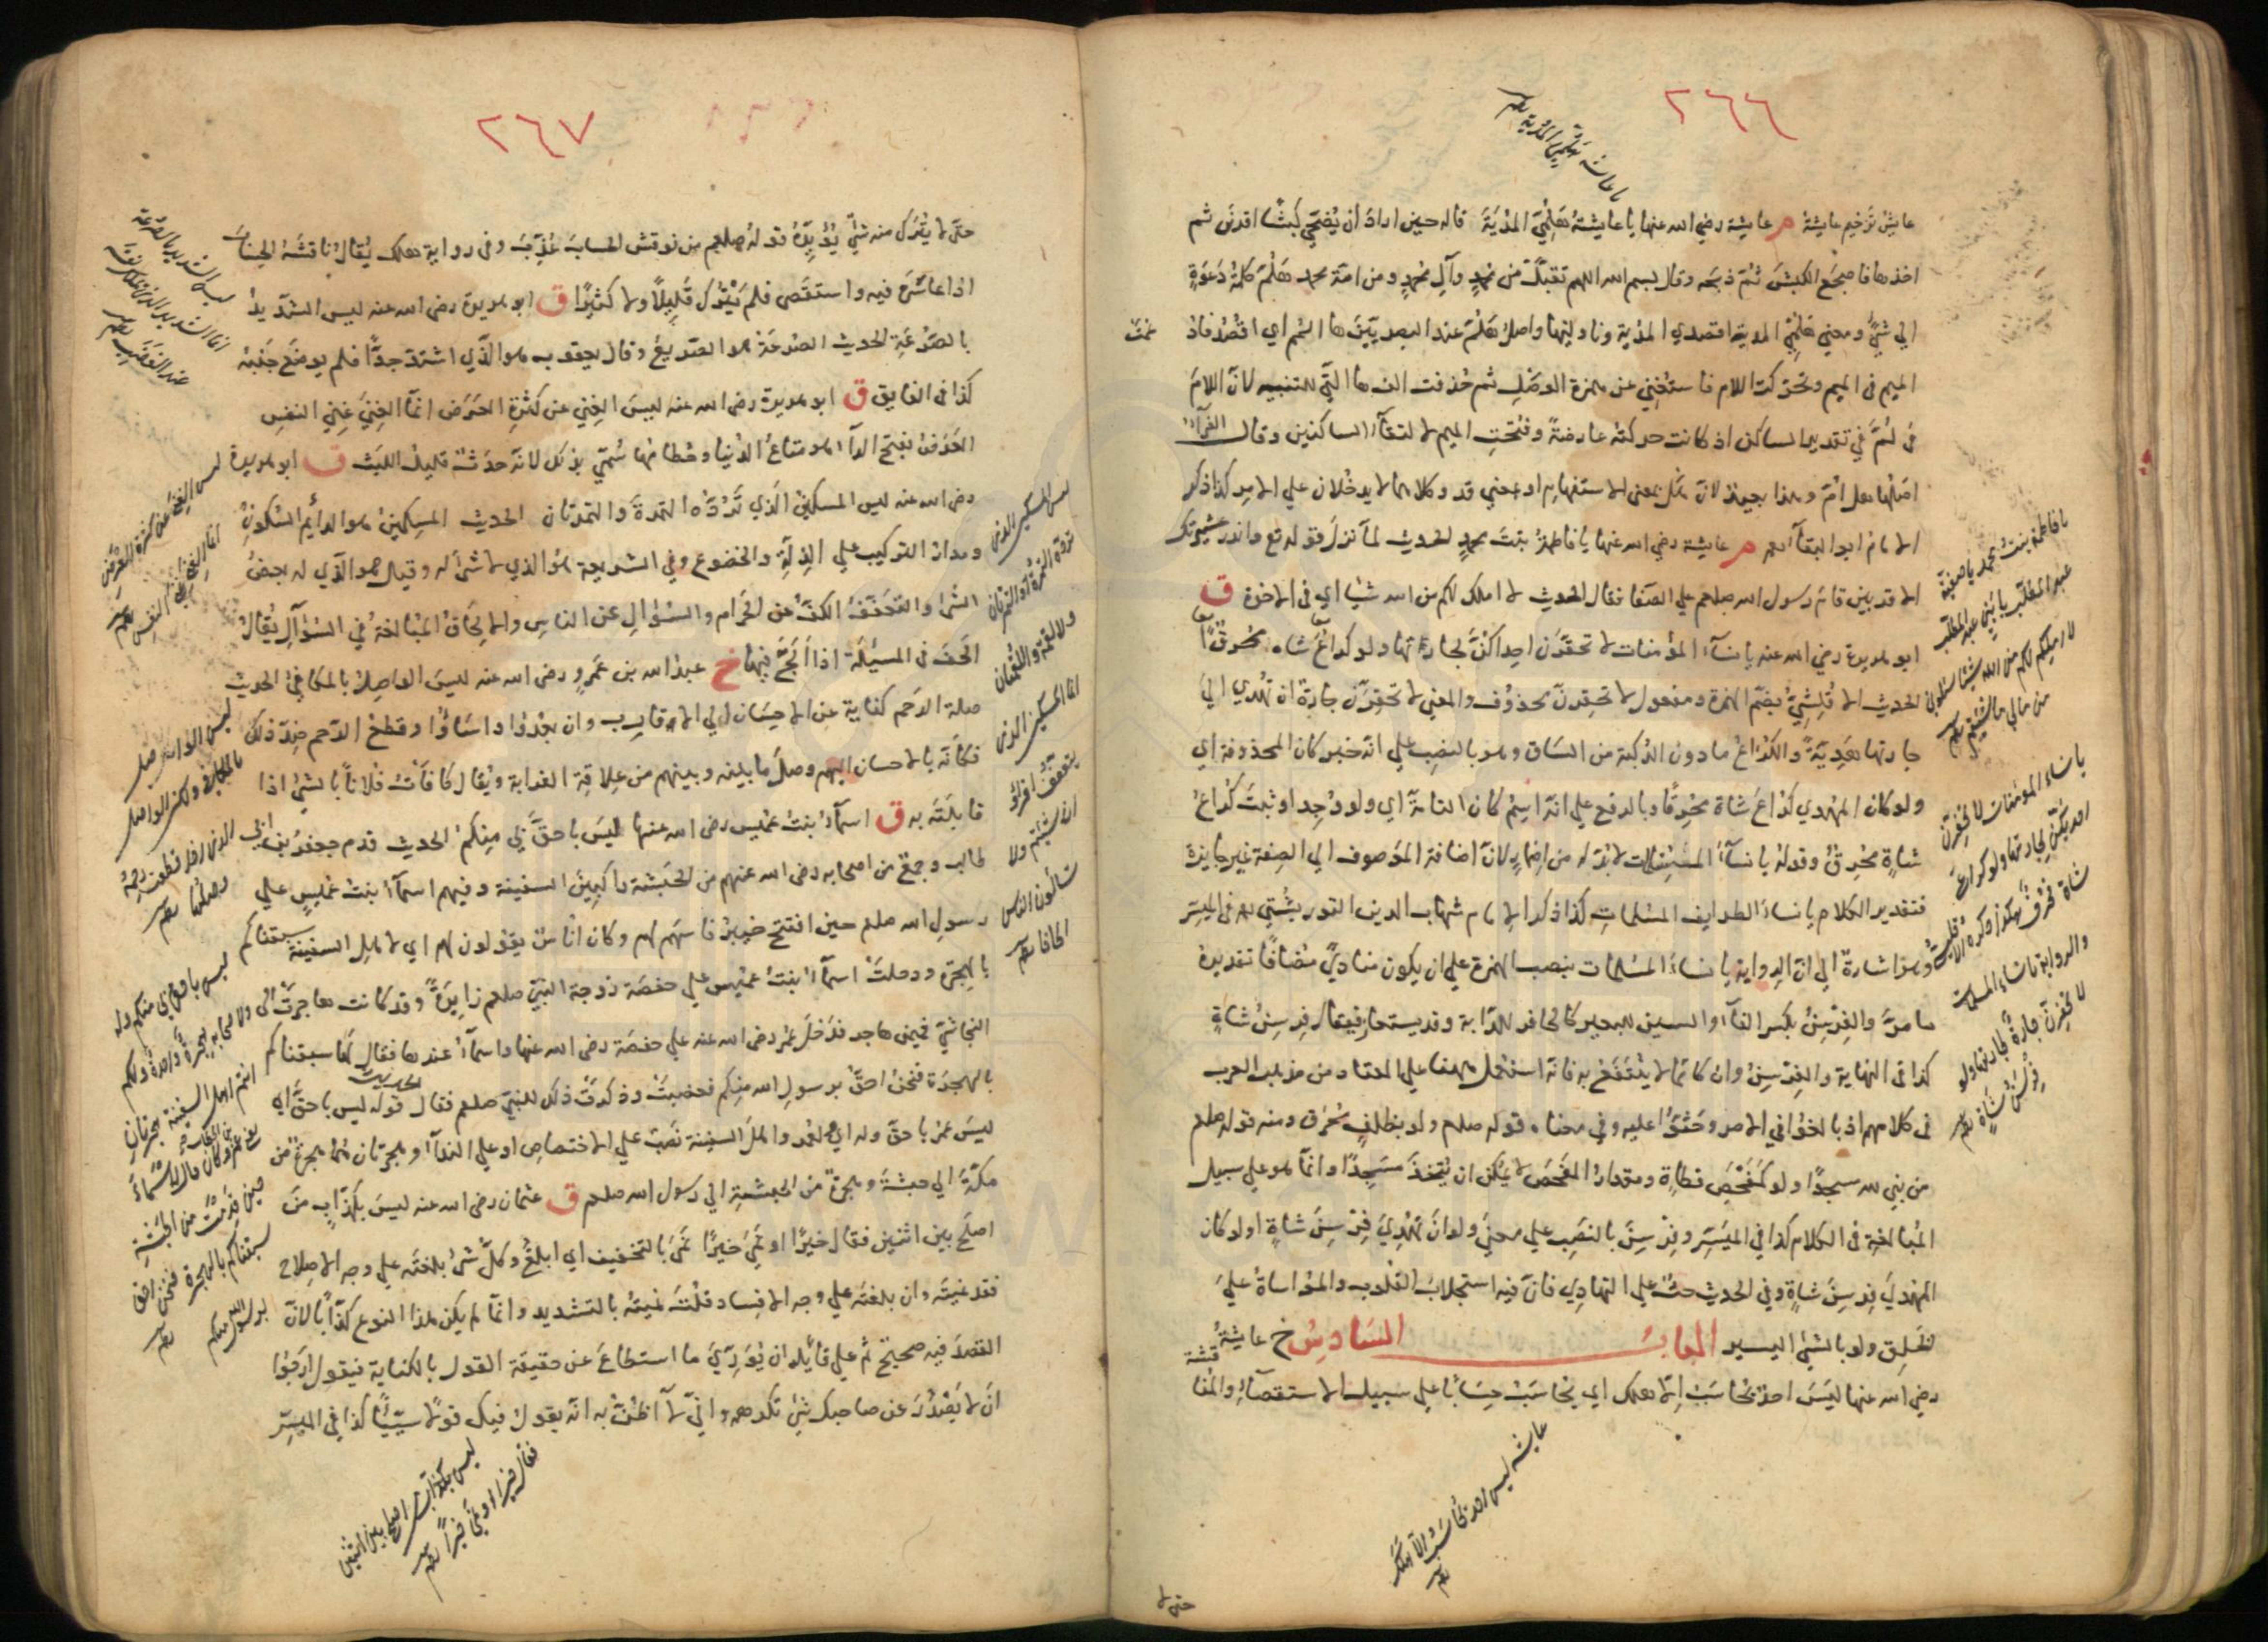 ٢٦٦
يا عائشة هلمي المدية
عايش ترخيم عايشة م عايشة رضي الله عنها يا عايشة هلمي المدية قاله حين اراد ان يضحي كبشا اقرن ثم
اخذها فاضجع الكبش ثم ذبحه وقال بسم الله اللهم تقبل من محمد وآل محمد ومن امة محمد هلم كلمة دعوة
الي شيء ومعني هلمي المدية اقصدي المدية وناوليها واصل هلم عند البصريين ها الم اي اقصد فاد غمت
الميم في الميم وتحركت اللام فاستغني عن همزة الوصل ثم حذفت الف ها التي للتنبيه لان اللام
في لم في تقدير الساكن اذ كانت حركته عارضة وفتحت الميم لالتقاء الساكنين وقال الفراء
اصلها هل ام وهذا بعيد لان هل بمعني الاستفهام او بمعني قد وكلاهما لا يدخلان علي الامر كذا ذكر
الامام ابو البقاء م عايشة رضي الله عنها يا فاطمة بنت محمد الحديث لما نزل قوله تع وانذر عشيرتك
الاقربين قام رسول الله صلعم علي الصفا فقال الحديث لا املك لكم من الله شيا اي في الاخرة ق
ابو هريرة رضي الله عنه يا نساء المؤمنات لا تحقرن احداكن لجارتها ولو كراع شاة محرق
الحديث الا قليشي بضم الهمزة ومفعول لا تحقرن محذوف والمعني لا تحقرن جارة ان تهدي الي
جارتها هدية والكراع ما دون الركبة من الساق وهو بالنصب علي انه خبر كان المحذوفة اي
ولو كان المهدي كراع شاة محرقا وبالرفع علي انه اسم كان التامة اي ولو وجد او ثبت كراع
شاة محرق وقوله يا نساء المسلمات لا بد له من اضمار لان اضافة الموصوف الي الصفة غير جايزة
فتقدير الكلام يا نساء الطوايف المسلمات كذا ذكر الامام شهاب الدين التوربشتي في الميسر
وهو اشارة الي ان الرواية يا نساء المسلمات بنصب الهمزة علي ان يكون منادي مضافا تقديره
ما مر والفرسن بكسر الفاء والسين للبعير كالحافر للدابة وقد يستعار فيقال فرسن شاة
كذا في النهاية والفرسن وان كان مما لا ينتفع به فانه استعمل ههنا علي المعتاد من مذهب العرب
في كلامهم اذ بالغوا في الامر وحثوا عليه وفي معناه قوله صلعم ولو بظلف محرق ومنه قوله صلعم
من بني لله مسجدا ولو كمفحص قطاة ومقدار المفحص لا يمكن ان يتخذ مسجدا وانما هو علي سبيل
المبالغة في الكلام كذا في الميسر وفرسن بالنصب علي معني ولو ان تهدي فرسن شاة او لو كان
المهدي فرسن شاة وفي الحديث حث علي التهادي فان فيه استجلاب القلوب والمواساة علي
الخلق ولو بالشئ اليسير الباب السادس خ عايشة
رضي الله عنها ليس احد يحاسب الا هلك اي يحاسب حسابا علي سبيل الاستقصاء والمنا قشة
يا فاطمة بنت محمد يا صفية
عبد المطلب يا بني عبد المطلب
لا املك لكم من الله شيئا سلوني
من مالي ما شئتم
يا نساء المؤمنات لا تحقرن
احديكن لجارتها ولو كراع
شاة محرق
والرواية يا نساء المسلمات
لا تحقرن جارة لجارتها ولو
فرسن شاة
عايشة ليس احد يحاسب الا هلك
حتي لا
٢٦٧
حتي لا يترك منه شئ يؤيده قوله صلعم من نوقش الحساب عذب وفي رواية هلك يقال ناقشه الحساب
اذا عاسره فيه واستقصي فلم يترك قليلا ولا كثيرا ق ابو هريرة رضي الله عنه ليس الشديد
بالصرعة الحديث الصرعة هو الصريع وقال يعقوب هو الذي اشتد جدا فلم يوضع جنبه
كذا في الفايق ق ابو هريرة رضي الله عنه ليس الغني عن كثرة العرض انما الغني غني النفس
العرض بفتح الراء هو متاع الدنيا وحطامها سمي بذلك لانه حدث قليل اللبث ق ابو هريرة
رضي الله عنه ليس المسكين الذي ترده التمرة والتمرتان الحديث المسكين هو الدايم السكون
ومدار التركيب علي الذلة والخضوع وفي الشريعة هو الذي لا شئ له وقيل هو الذي له بعض
الشئ والتعفف الكف عن الحرام والسؤال عن الناس والالحاف المبالغة في السؤال يقال
الحف في المسئلة اذا الح فيها خ عبد الله بن عمرو رضي الله عنه ليس الواصل بالمكافئ الحديث
صلة الرحم كناية عن الاحسان الي الاقارب وان بعدوا واساؤا وقطع الرحم ضد ذلك
فكانه بالاحسان اليهم وصل ما بينه وبينهم من علاقة القرابة ويقال كافات فلانا بالشئ اذا
قابلته به ق اسماء بنت عميس رضي الله عنها ليس باحق بي منكم الحديث قدم جعفر بن ابي
طالب وجمع من اصحابه رضي الله عنهم من الحبشة راكبين السفينة وفيهم اسماء بنت عميس علي
رسول الله صلعم حين افتتح خيبر فاسهم لهم وكان اناس يقولون لهم اي لاهل السفينة سبقناكم
بالهجرة ودخلت اسماء بنت عميس علي حفصة زوجة النبي صلعم زايرة وقد كانت هاجرت الي
النجاشي فيمن هاجر فدخل عمر رضي الله عنه علي حفصة رضي الله عنها واسماء عندها فقال لها سبقناكم
بالهجرة فنحن احق برسول الله منكم فغضبت وذكرت ذلك للنبي صلعم فقال قوله ليس باحق الحديث اي
ليس عمر باحق وله اي لعمر واهل السفينة نصب علي الاختصاص او علي النداء وهجرتان هما هجرة من
مكة الي حبشة وهجرة من الحبشة الي رسول الله صلعم ق عثمان رضي الله عنه ليس بكذاب من
اصلح بين اثنين فقال خيرا او نمي خيرا نمي بالتخفيف اي ابلغ وكل شئ بلغته علي وجه الاصلاح
فقد نميته وان بلغته علي وجه الافساد قلت نميته بالتشديد وانما لم يكن هذا النوع كذبا لان
القصد فيه صحيح ثم علي قايله ان يوري ما استطاع عن حقيقة القول بالكناية فيقول ارجوا
ان لا يصدر عن صاحبك شئ تكرهه واني لا اظن به انه يقول فيك قولا سيئا كذا في الميسر
ليس الشديد بالصرعة
انما الشديد الذي يملك نفسه
عند الغضب
ليس الغني عن كثرة العرض
انما الغني غني النفس
ليس المسكين الذي
ترده التمرة او التمرتان
ولا اللقمة واللقمتان
انما المسكين الذي
يتعفف اقرؤا
ان شئتم ولا
يسالون الناس
الحافا
ليس الواصل
بالمكافئ ولكن الواصل
الذي اذا قطعت رحمه
وصلها
ليس باحق بي منكم وله
ولاصحابه هجرة واحدة ولكم
انتم اهل السفينة هجرتان
حين قدمت من الحبشة
سبقناكم بالهجرة فنحن احق
برسول الله منكم
ليس بكذاب من اصلح بين اثنين
فقال خيرا او نمي خيرا